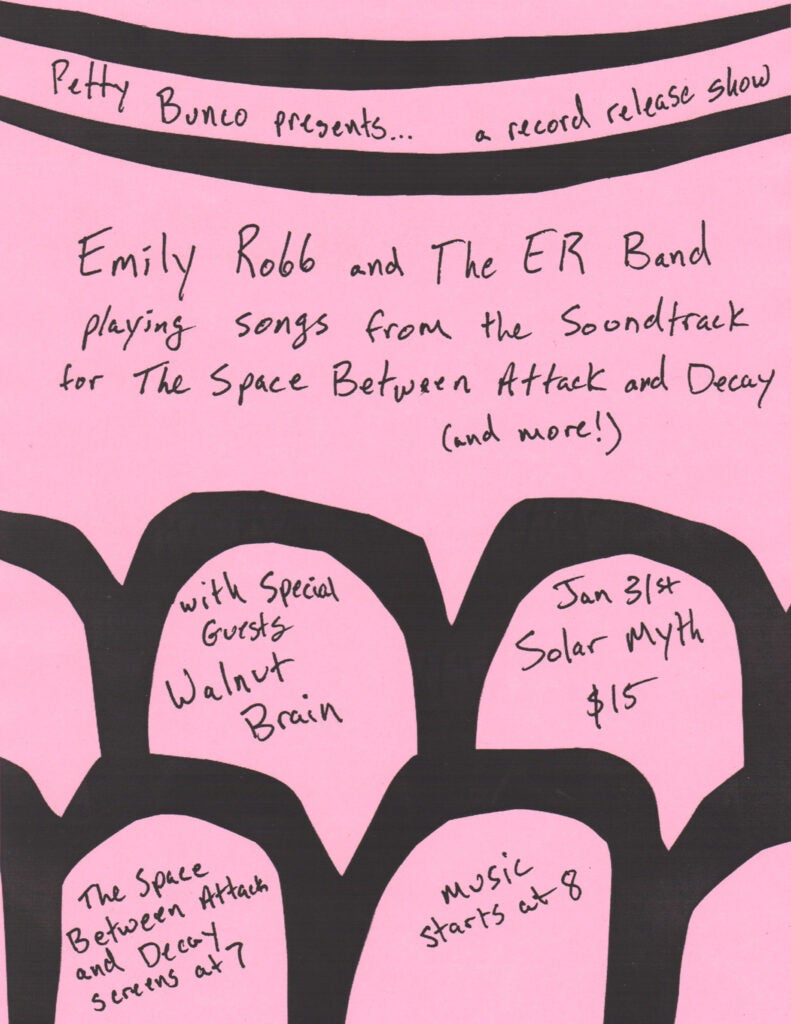 Petty Bunco presents... a record release show
Emily Robb and The ER Band
playing songs from the Soundtrack
for The Space Between Attack and Decay
(and more!)
with Special
Guests
Walnut
Brain
Jan 31st
Solar Myth
$15
The Space
Between Attack
and Decay
screens at 7
music
starts at 8